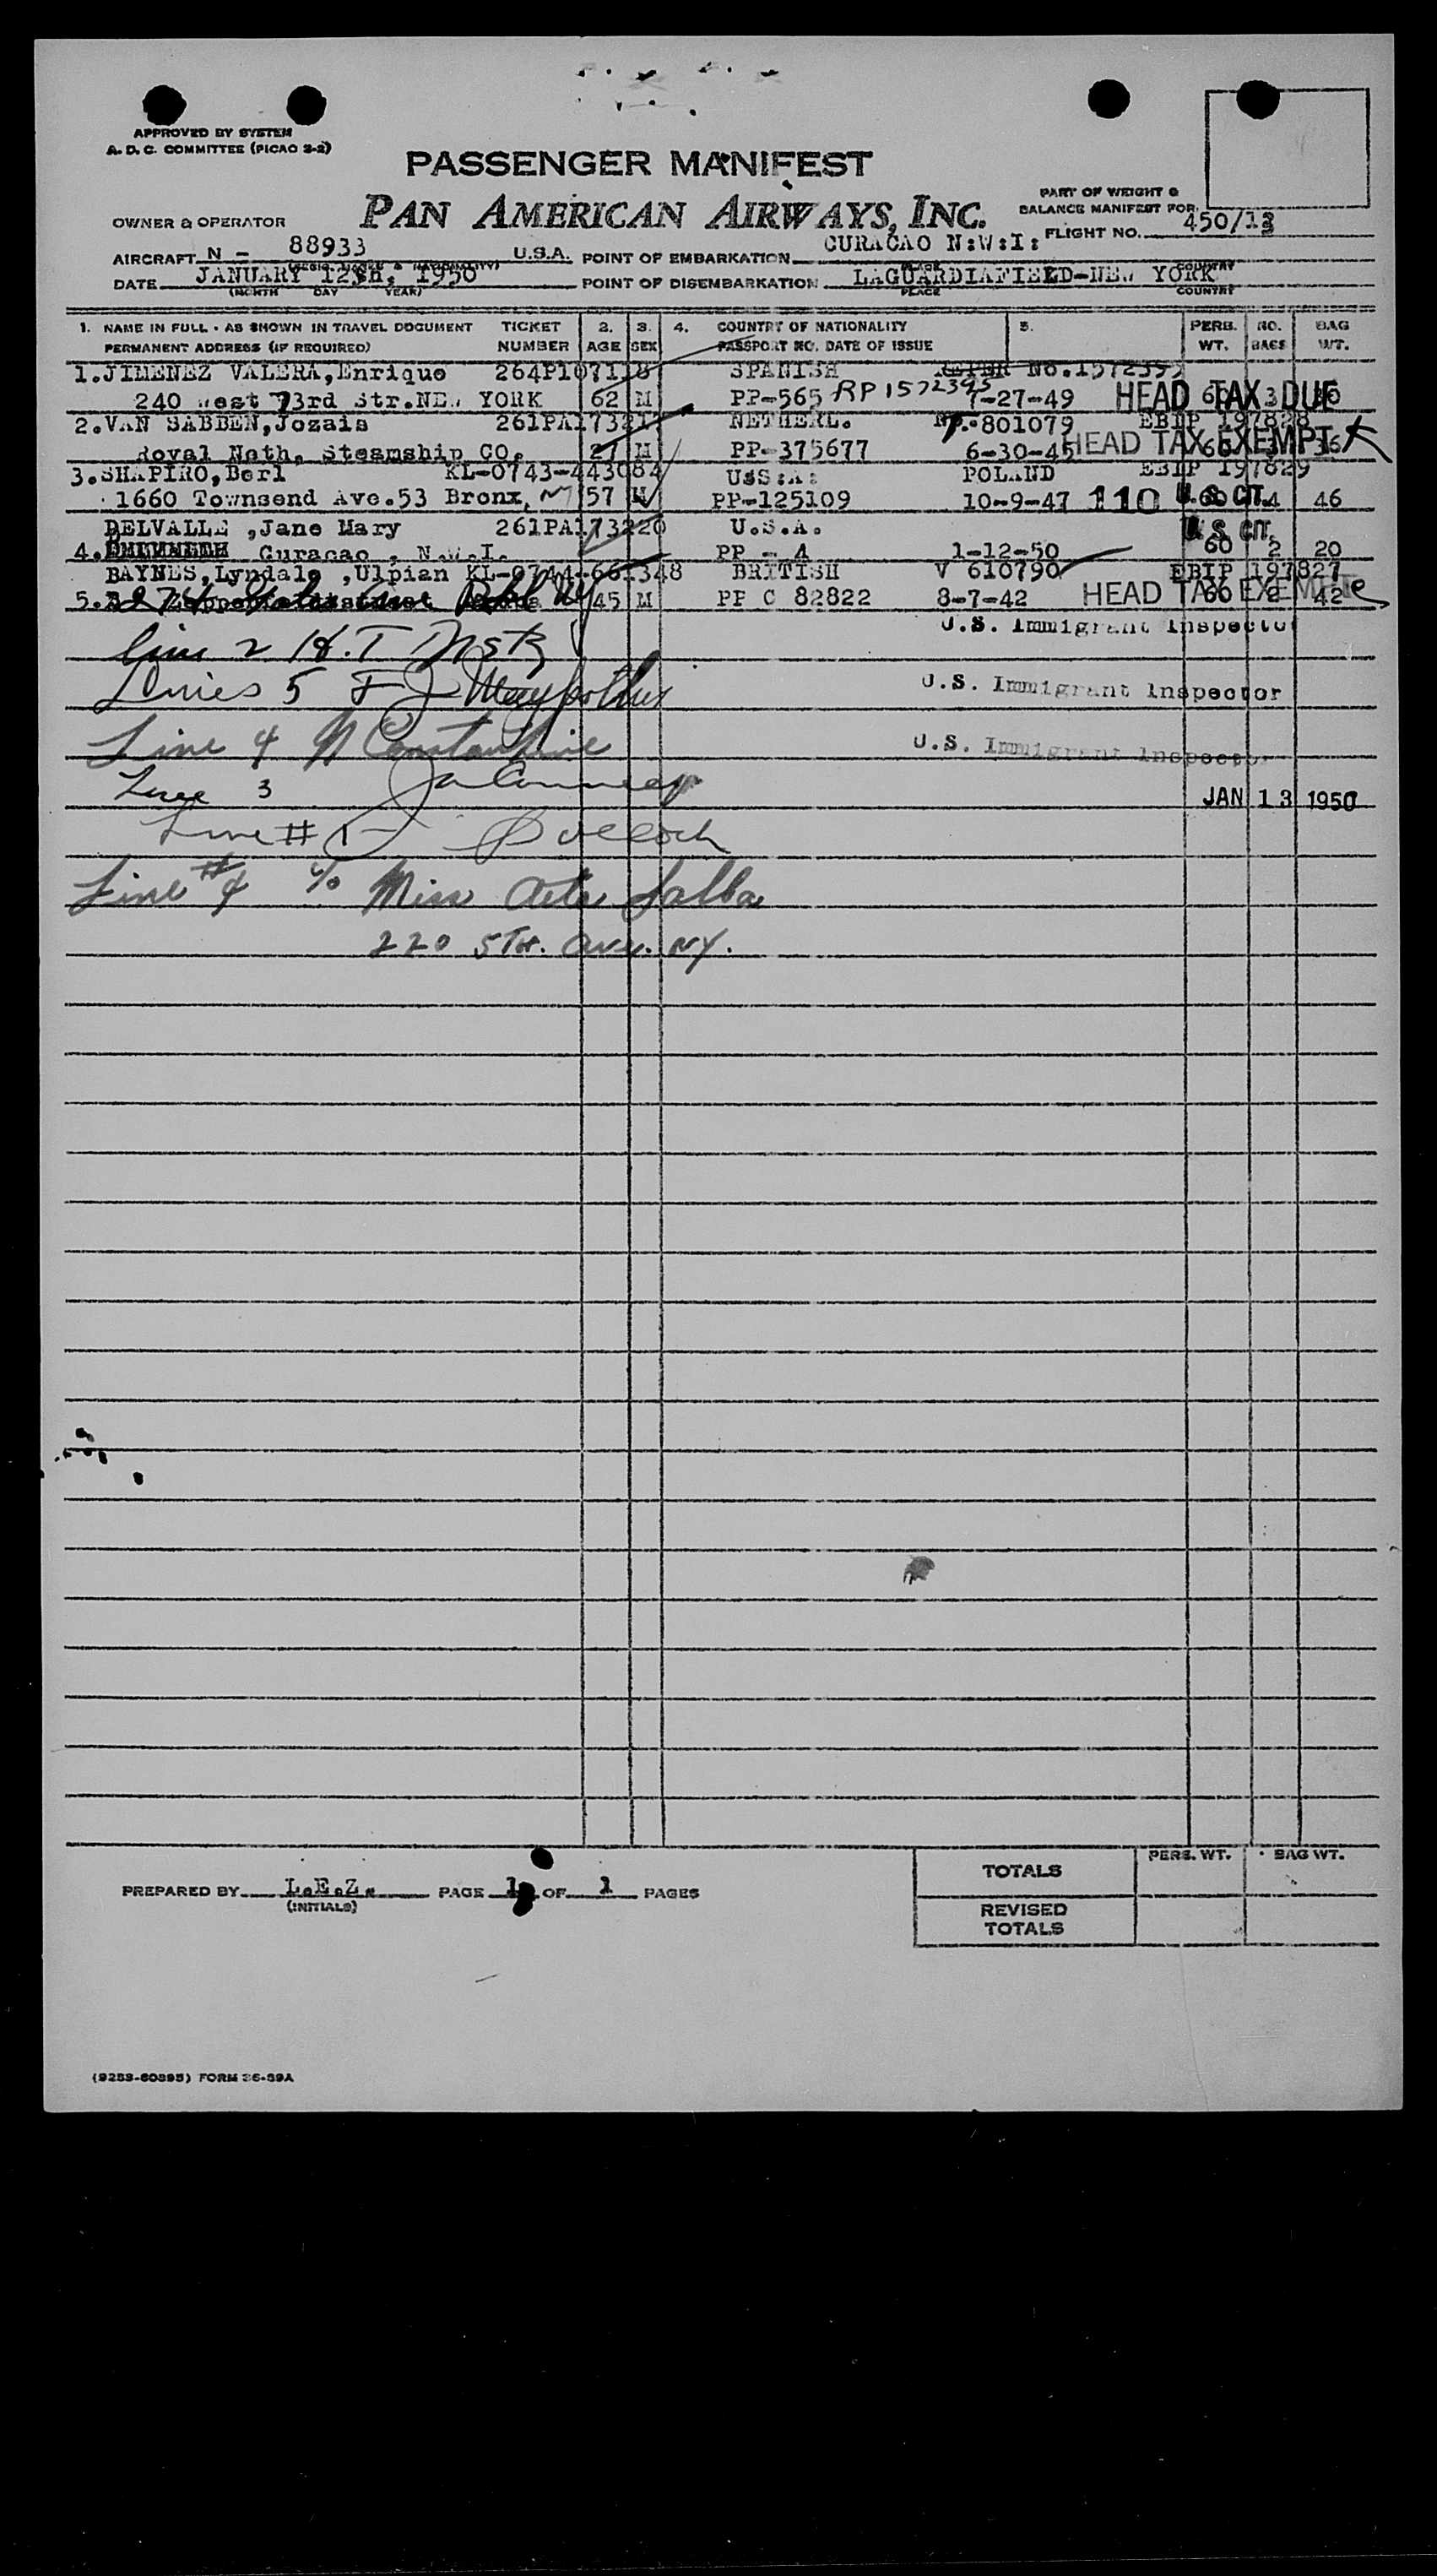 APPROVED BY SYSTEM
A. D. C. COMMITTEE (PICAO 3-2)
PASSENGER MANIFEST
PAN AMERICAN AIRWAYS, INC.
PART OF WEIGHT &
BALANCE MANIFEST FOR
OWNER & OPERATOR
FLIGHT NO. 450/12
AIRCRAFT N - 88933 U.S.A. POINT OF EMBARKATION CURACAO N:W:I:
DATE JANUARY 12th, 1950 POINT OF DISEMBARKATION LAGUARDIAFIELD-NEW YORK
(MONTH DAY YEAR) PLACE COUNTRY
1. NAME IN FULL - AS SHOWN IN TRAVEL DOCUMENT TICKET 2. 3. 4. COUNTRY OF NATIONALITY 5. PERS. NO. BAG
PERMANENT ADDRESS (IF REQUIRED) NUMBER AGE SEX PASSPORT NO. DATE OF ISSUE WT. BAGS WT.
1.JIMENEZ VALERA,Enrique 264P107118 SPANISH No.1572395
240 West 73rd Str.NEW YORK 62 M PP-565 RP 1572395 7-27-49 HEAD TAX DUE 3
2.VAN SABBEN,Jozais 261PA17321 NETHERL. 801079 EBIIP 197828
Royal Neth, Steamship CO. 27 M PP-375677 6-30-45 HEAD TAX EXEMPT
3.SHAPIRO,Berl KL-0743-443084 U:S:A: POLAND EBIIP 197829
1660 Townsend Ave.53 Bronx, NY 57 M PP-125109 10-9-47 110 U.S. CIT. 60 4 46
DELVALLE ,Jane Mary 261PA173220 U.S.A. U.S. CIT.
4. Curacao , N.W.I. PP - A 1-12-50 60 2 20
BAYNES,Lyndale ,Ulpian KL-0744-661348 BRITISH V 610790 EBIP 197827
5. 45 M PP C 82822 8-7-42 HEAD TAX EXEMPT 2 42
U.S. Immigrant Inspector
Line 2 H.T
Lines 5 F J U.S. Immigrant Inspector
Line 4 N Constantine U.S. Immigrant Inspector
Line 3
JAN 13 1950
Line # 1
Line # 4 c/o Miss
220 5TH. Ave. NY.
TOTALS PERS. WT. BAG WT.
PREPARED BY L.E.Z. PAGE 1 OF 1 PAGES
(INITIALS)
REVISED
TOTALS
(9283-60895) FORM 36-39A